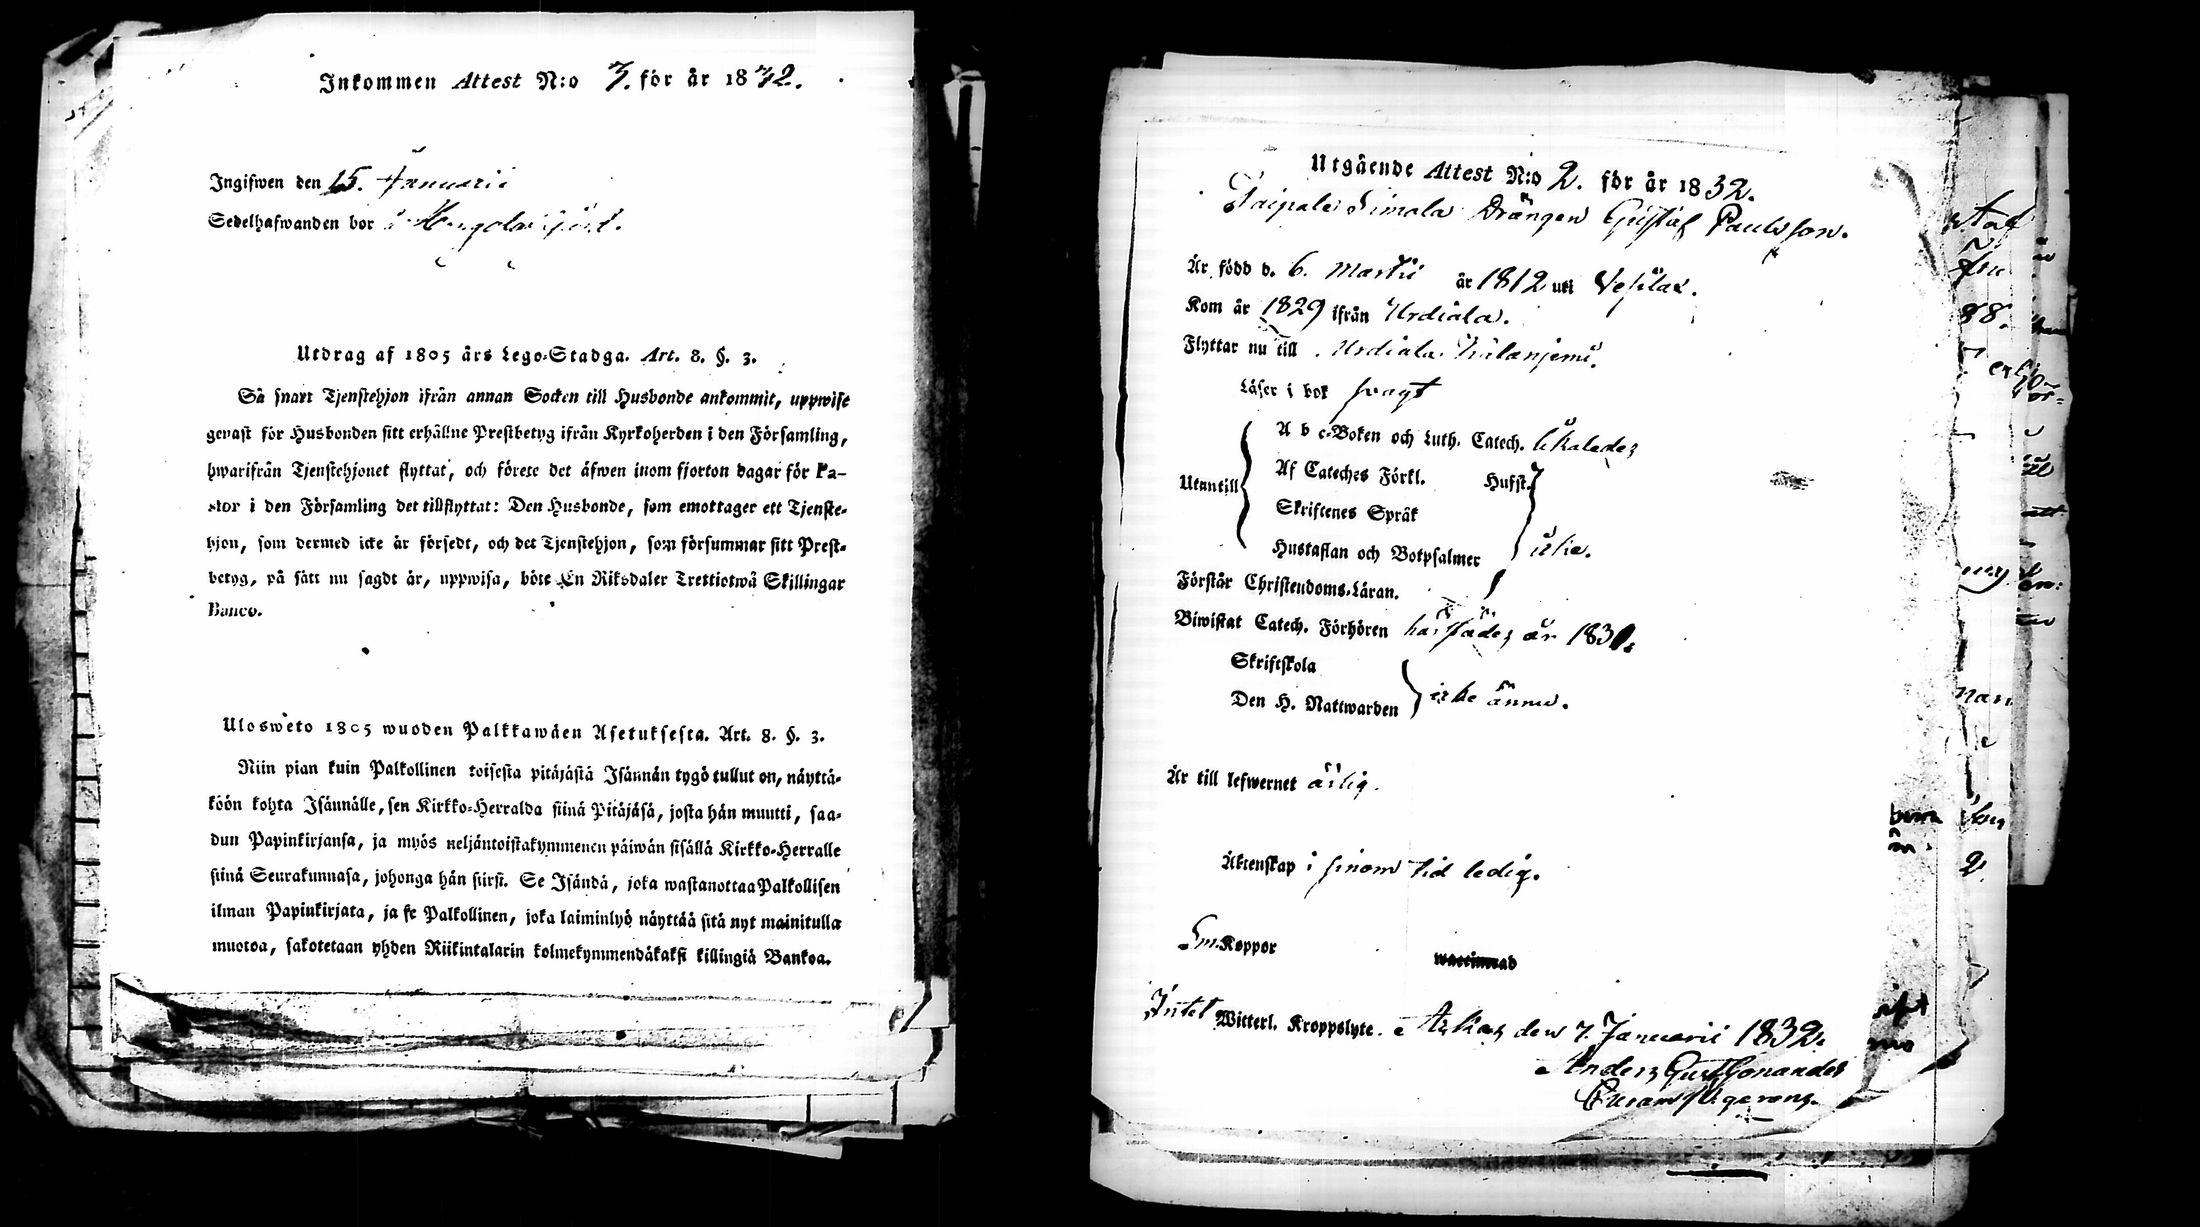 Inkommen Attest N:o 3. för år 1832.
Ingifwen den 15. Januarii
Sedelhafwanden bor
Utdrag af 1805 års Lego-Stadga. Art. 8. §. 3.
Så snart Tjenstehjon ifrån annan Socken till Husbonde ankommit, uppwise
genast för Husbonden sitt erhållne Prestbetyg ifrån Kyrkoherden i den Församling,
hwarifrån Tjenstehjonet flyttat, och förete det äfwen inom fjorton dagar för Pa-
stor i den Församling det tillflyttat: Den Husbonde, som emottager ett Tjenste-
hjon, som dermed icke är försedt, och det Tjenstehjon, som försummar sitt Prest-
betyg, på sätt nu sagdt är, uppwisa, böte En Riksdaler Trettiotwå Skillingar
Banco.
Ulosweto 1805 wuoden Palkkawäen Asetuksesta. Art. 8. §. 3.
Niin pian kuin Palkollinen toisesta pitäjästä Isännän tygö tullut on, näyttä-
köön kohta Isännälle, sen Kirkko-Herralda siinä Pitäjäsä, josta hän muutti, saa-
dun Papinkirjansa, ja myös neljäntoistakymmenen päiwän sisällä Kirkko-Herralle
siinä Seurakunnasa, johonga hän siirsi. Se Isändä, joka wastanottaa Palkollisen
ilman Papinkirjata, ja se Palkollinen, joka laiminlyö näyttää sitä nyt mainitulla
muotoa, sakotetaan yhden Riikintalarin kolmekymmendäkaksi killingiä Bankoa.
Utgående Attest N:o 2. för år 1832.
Taipale Simola Drängen Gustaf Paulsson.
Är född d. 6. Martii år 1812 uti Vesilax.
Kom år 1829 ifrån Urdiala.
Flyttar nu till Urdiala
Läser i bok svagt
Utantill
A b c-Boken och Luth. Catech.
Af Cateches Förkl. Husst.
Skriftenes Språk
Hustaflan och Botpsalmer icke.
Förstår Christendoms-Läran.
Biwistat Catech. Förhören härstädes år 1831.
Skriftskola
Den H. Nattwarden icke ännu.
Är till lefwernet ärlig.
Äktenskap i sinom tid ledig.
Sm. Koppor
Intet Witterl. Kroppslyte. Akkas den 7. Januarii 1832.